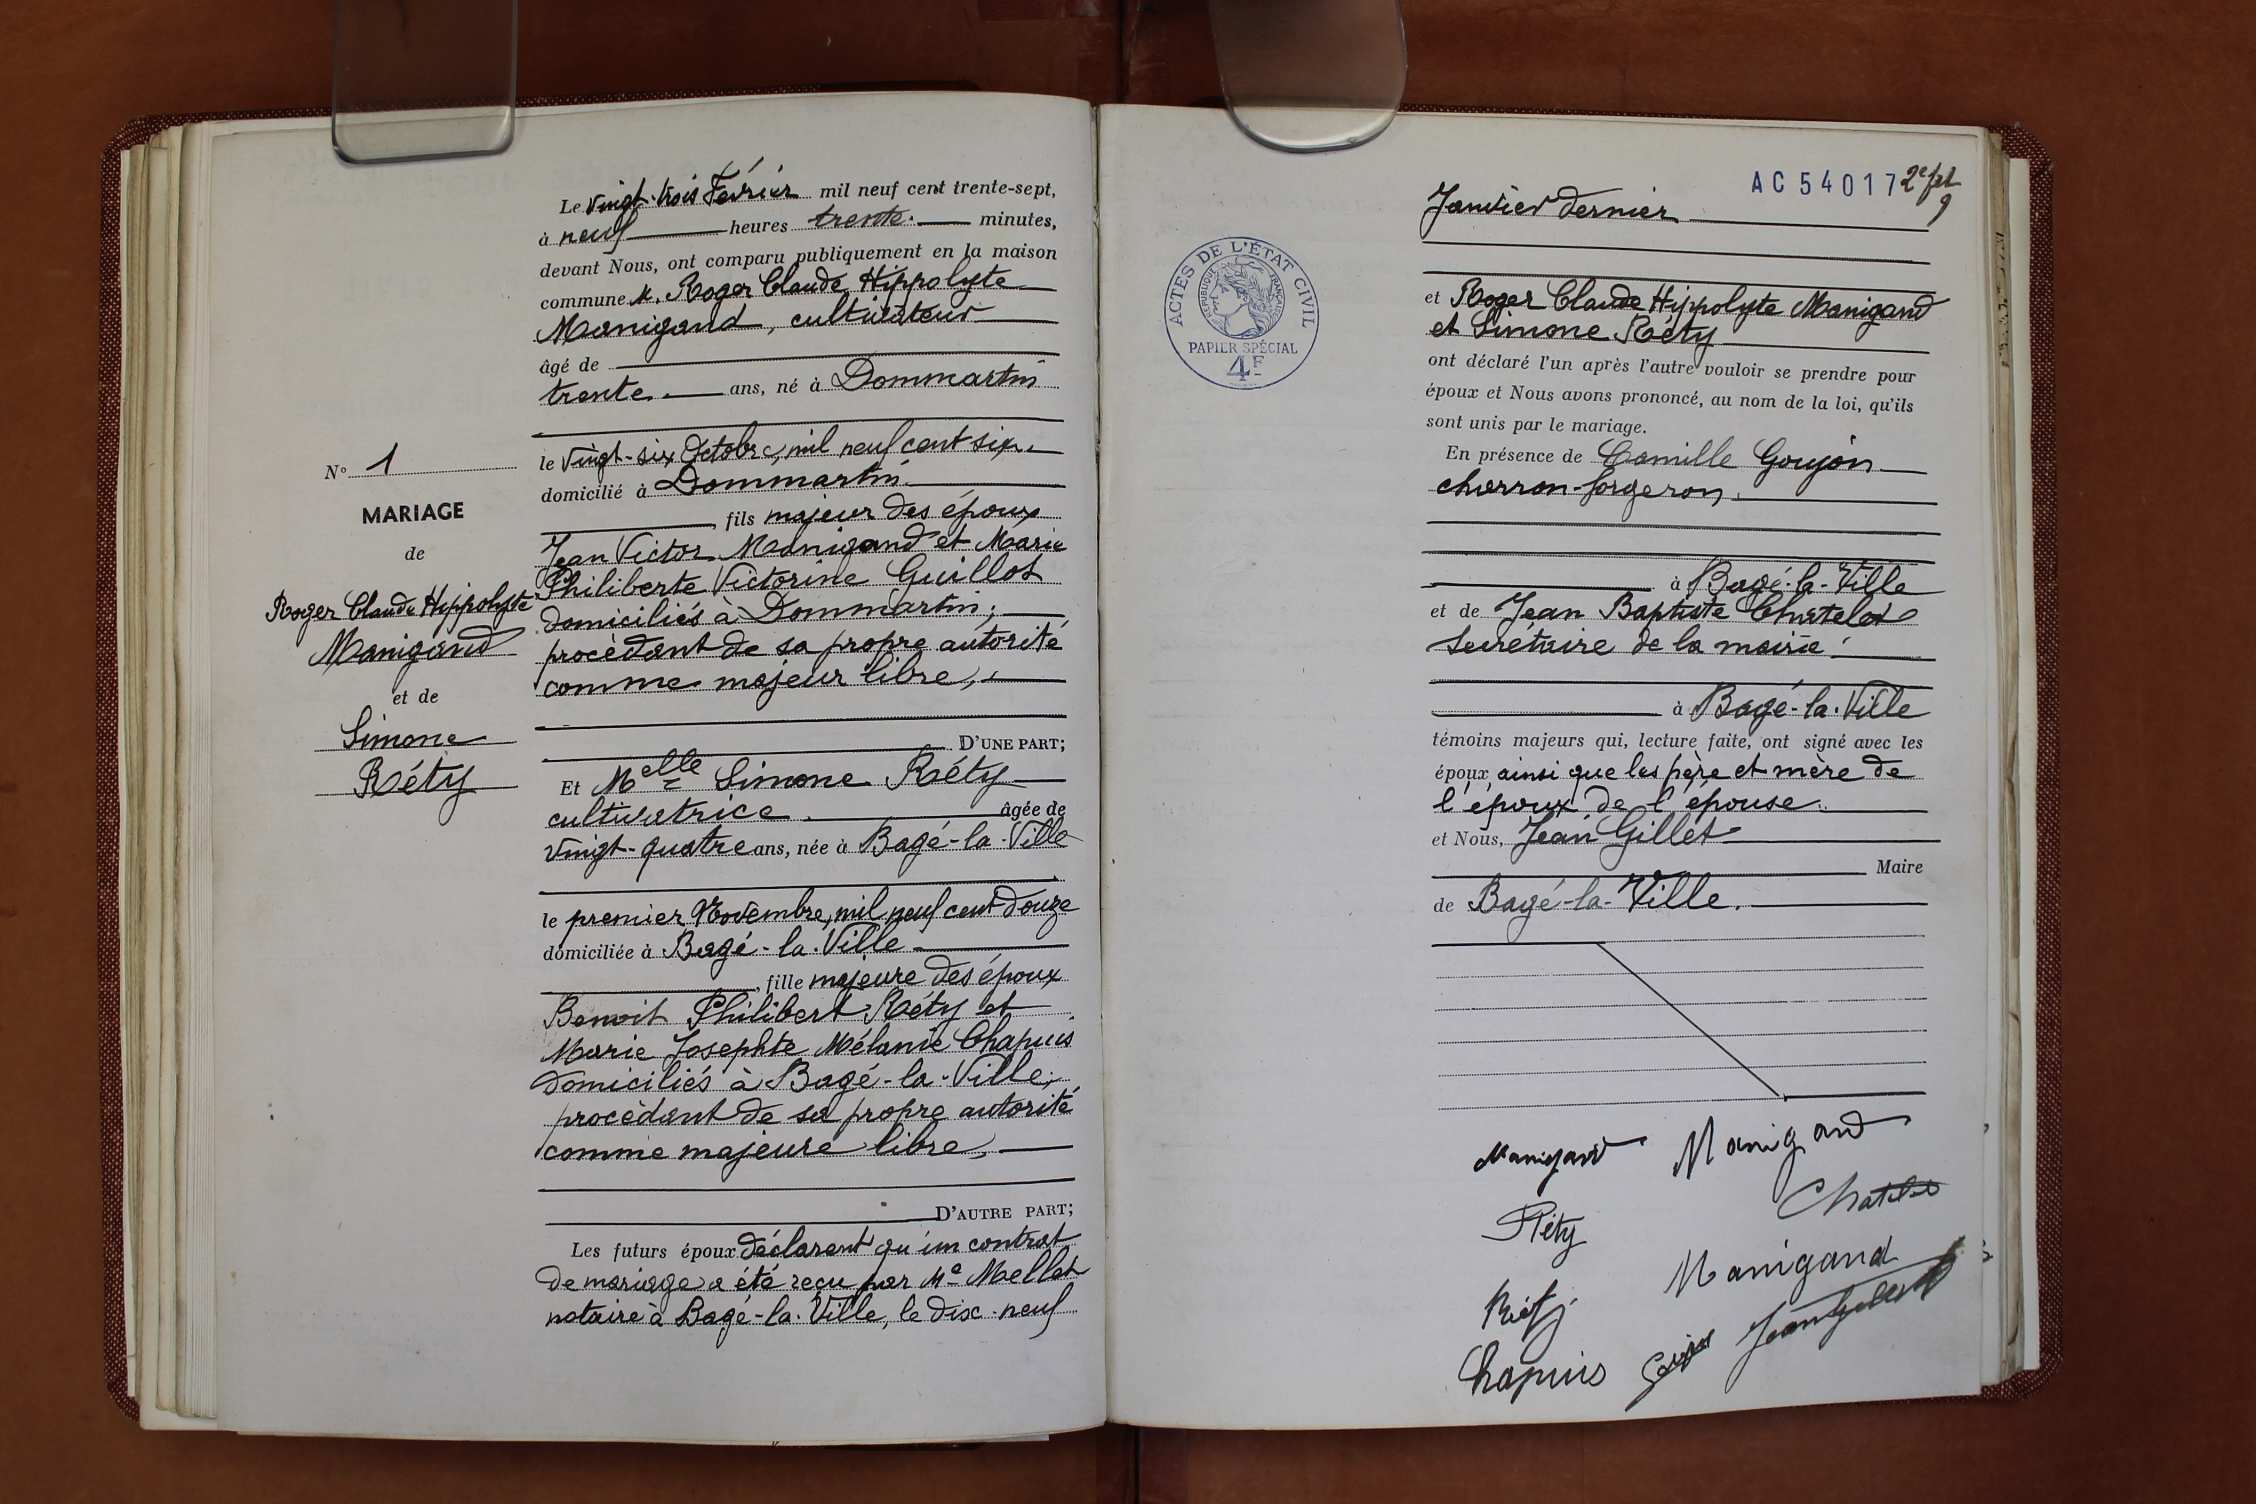 N° 1
MARIAGE
de
Roger Claude Hippolyte
Manigand
et de
Simone
Réty
Le vingt-trois Février mil neuf cent trente-sept,
à neuf heures trente minutes,
devant Nous, ont comparu publiquement en la maison
commune M. Roger Claude Hippolyte
Manigand, cultivateur
âgé de
trente ans, né à Dommartin
le vingt-six Octobre, mil neuf cent six
domicilié à Dommartin
, fils majeur des époux
Jean Victor Manigand et Marie
Philiberte Victorine Guillot
domiciliés à Dommartin,
procédant de sa propre autorité
comme majeur libre,
D'UNE PART;
Et Melle Simone Réty
cultivatrice âgée de
vingt-quatre ans, née à Bagé-la-Ville
le premier Novembre, mil neuf cent douze
domiciliée à Bagé-la-Ville
, fille majeure des époux
Benoit Philibert Réty et
Marie Josephte Mélanie Chapuis
domiciliés à Bagé-la-Ville,
procédant de sa propre autorité
comme majeure libre,
D'AUTRE PART;
Les futurs époux déclarent qu'un contrat
de mariage a été reçu par Me Mellet
notaire à Bagé-la-Ville, le dix-neuf
AC 54017
Janvier dernier
ACTES DE L'ÉTAT CIVIL
RÉPUBLIQUE FRANÇAISE
PAPIER SPÉCIAL
4F
et Roger Claude Hippolyte Manigand
et Simone Réty
ont déclaré l'un après l'autre vouloir se prendre pour
époux et Nous avons prononcé, au nom de la loi, qu'ils
sont unis par le mariage.
En présence de Camille Goujon
charron-forgeron,
à Bagé-la-Ville
et de Jean Baptiste Chatelet
secrétaire de la mairie
à Bagé-la-Ville
témoins majeurs qui, lecture faite, ont signé avec les
époux ainsi que les père et mère de
l'époux de l'épouse
et Nous, Jean Gillet
Maire
de Bagé-la-Ville.
Manigand Manigand
Chatelet
Réty
Manigand
Réty
Jean Gillet
Chapuis Goujon